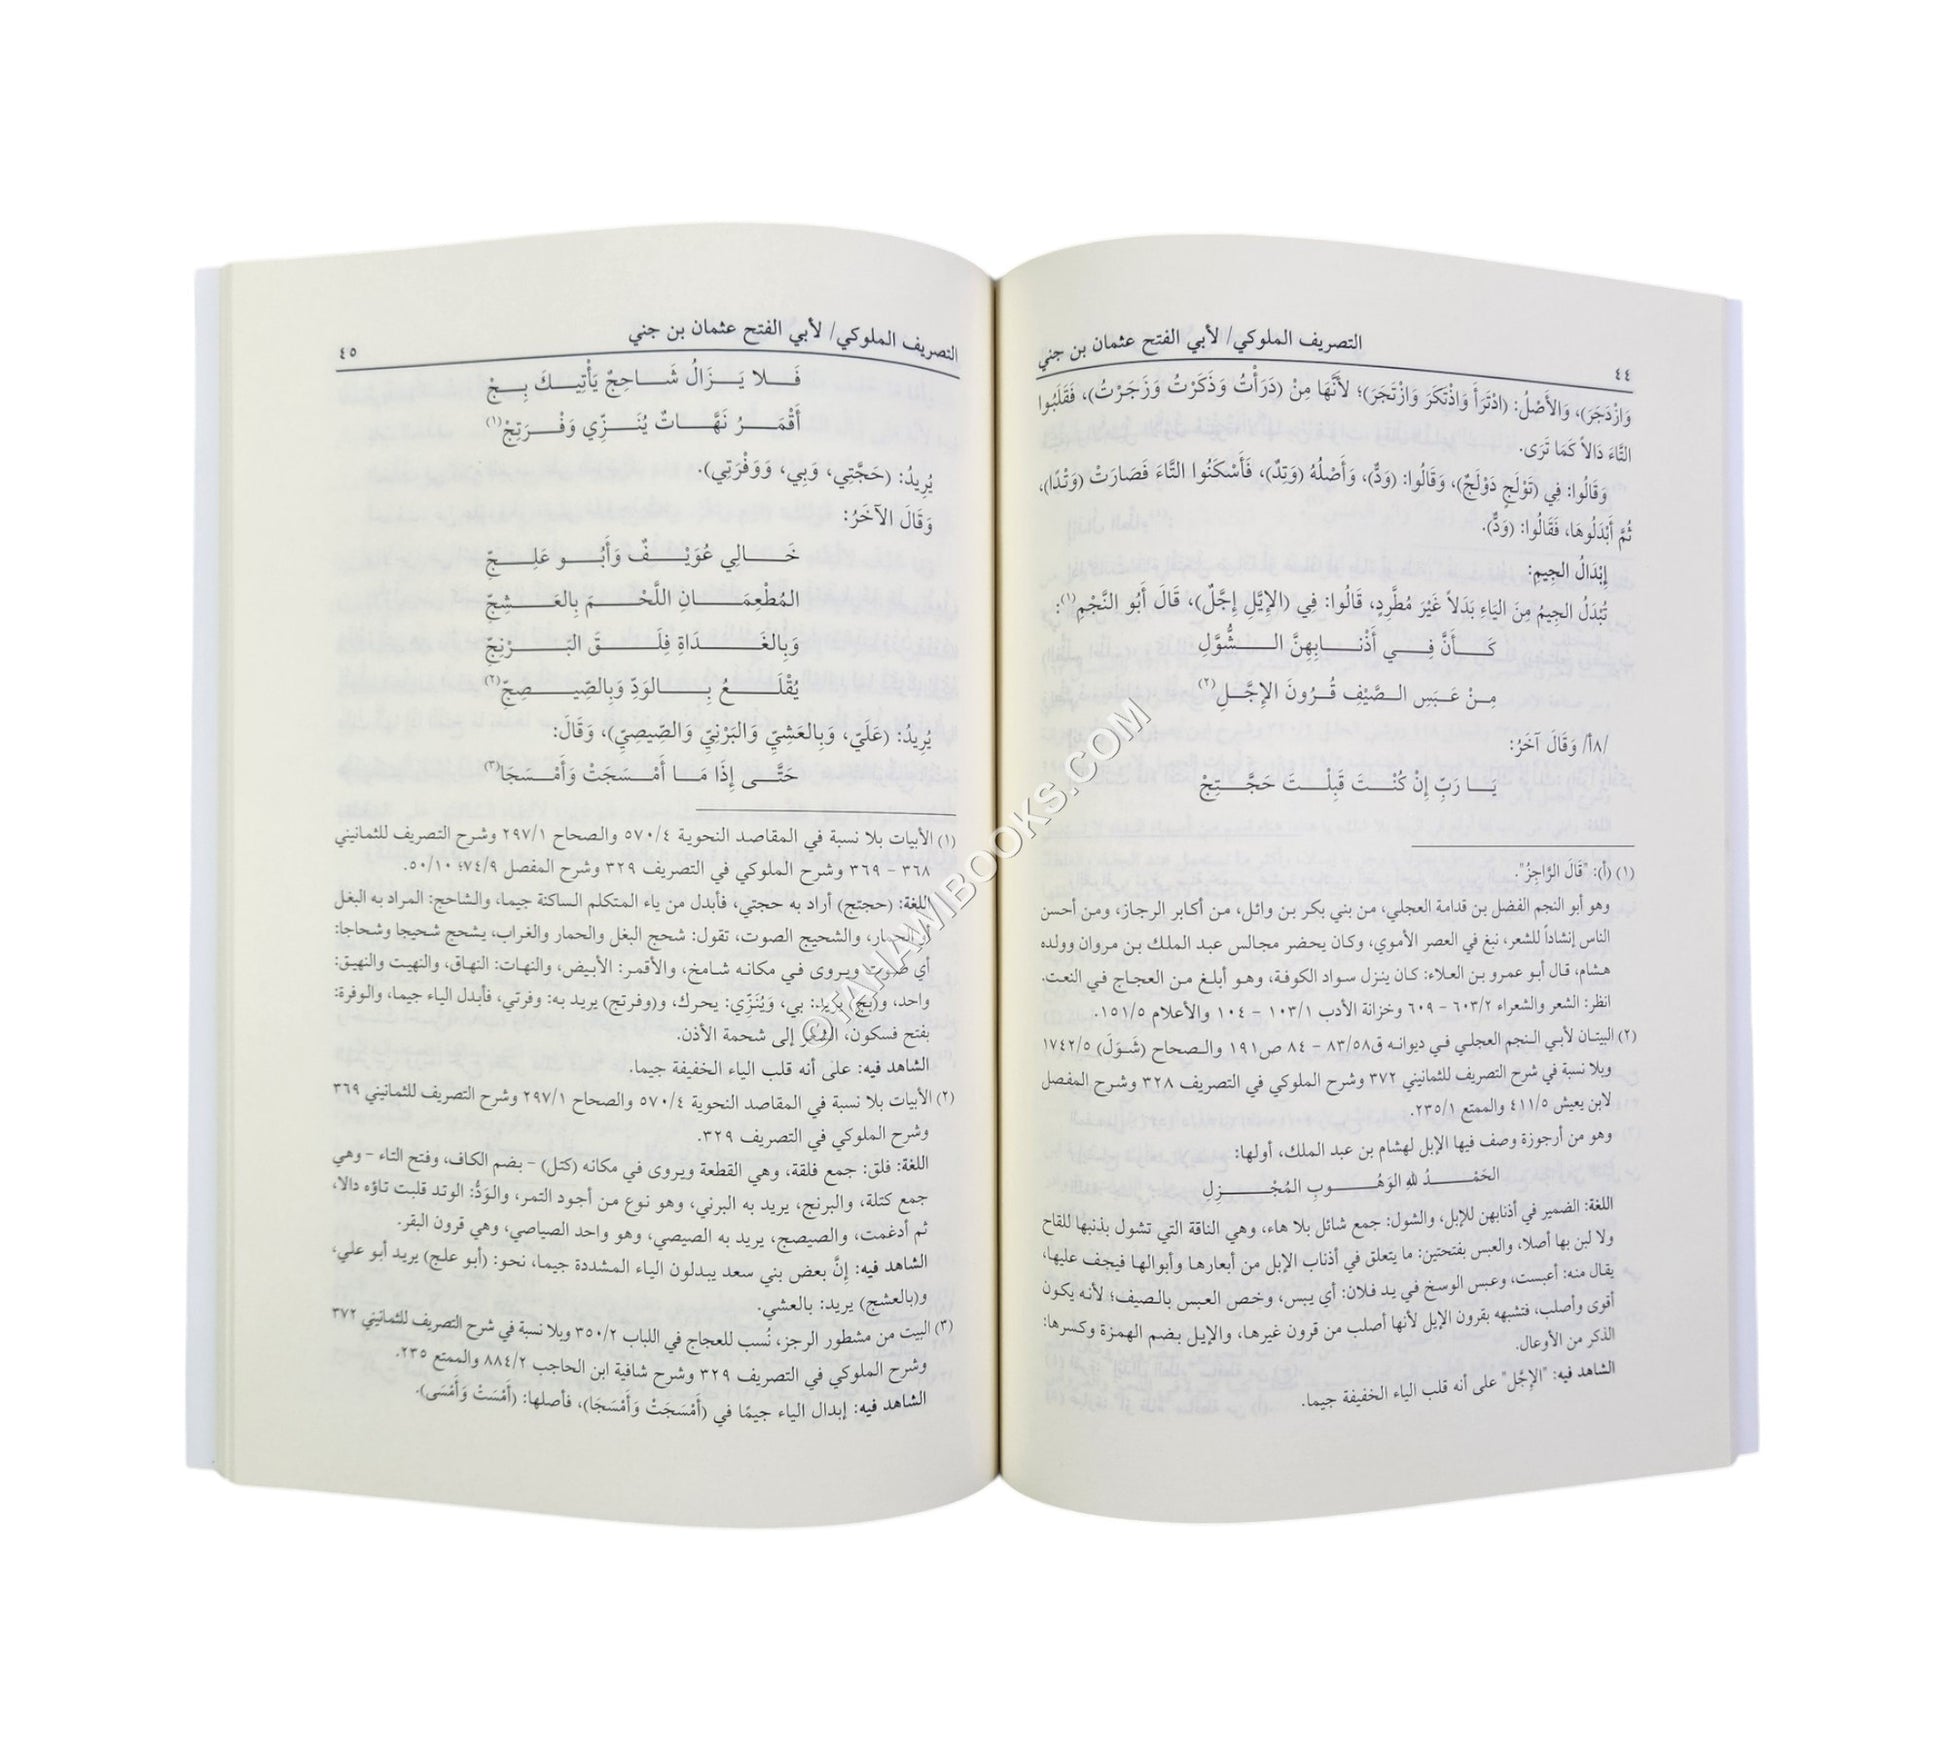 ٤٤
التصريف الملوكي/ لأبي الفتح عثمان بن جني
وَازْدَجَرَ)، وَالأَصْلُ: (ادْتَرَأَ وَاذْتَكَرَ وَازْتَجَرَ)؛ لأَنَّهَا مِنْ (دَرَأْتُ وَذَكَرْتُ وَزَجَرْتُ)، فَقَلَبُوا
التَّاءَ دَالاً كَمَا تَرَى.
وَقَالُوا: فِي (تَوْلَجٍ دَوْلَجٌ)، وَقَالُوا: (وَدٌّ)، وَأَصْلُهُ (وَتِدٌ)، فَأَسْكَنُوا التَّاءَ فَصَارَتْ (وَتْدًا)،
ثُمَّ أَبْدَلُوهَا، فَقَالُوا: (وَدٌّ).
إِبْدَالُ الجِيمِ:
تُبْدَلُ الجِيمُ مِنَ اليَاءِ بَدَلاً غَيْرَ مُطَّرِدٍ، قَالُوا: فِي (الإِيَّلِ إِجَّلٌ)، قَالَ أَبُو النَّجْمِ(١):
كَــأَنَّ فِــي أَذْنَــابِهِنَّ الــشُّوَّلِ
مِنْ عَبَسِ الصَّيْفِ قُرُونَ الإِجَّلِ(٢)
/٨أ/ وَقَالَ آخَرُ:
يَــا رَبِّ إِنْ كُنْــتَ قَبِلْــتَ حَجَّــتِجْ
(١) (أ): "قَالَ الرَّاجِزُ".
وهو أبو النجم الفضل بن قدامة العجلي، من بني بكر بن وائل، من أكابر الرجاز، ومن أحسن
الناس إنشاداً للشعر، نبغ في العصر الأموي، وكان يحضر مجالس عبد الملك بن مروان وولده
هشام، قال أبو عمرو بن العلاء: كان ينزل سواد الكوفة، وهو أبلغ من العجاج في النعت.
انظر: الشعر والشعراء ٦٠٣/٢ - ٦٠٩ وخزانة الأدب ١٠٣/١ - ١٠٤ والأعلام ١٥١/٥.
(٢) البيتان لأبي النجم العجلي في ديوانه ق٨٣/٥٨ - ٨٤ ص١٩١ والصحاح (شَوَلَ) ١٧٤٢/٥
وبلا نسبة في شرح التصريف للثمانيني ٣٧٢ وشرح الملوكي في التصريف ٣٢٨ وشرح المفصل
لابن يعيش ٤١١/٥ والممتع ٢٣٥/١.
وهو من أرجوزة وصف فيها الإبل لهشام بن عبد الملك، أولها:
الحَمْــدُ للهِ الوَهُــوبِ المُجْــزِلِ
اللغة: الضمير في أذنابهن للإبل، والشول: جمع شائل بلا هاء، وهي الناقة التي تشول بذنبها للقاح
ولا لبن بها أصلا، والعبس بفتحتين: ما يتعلق في أذناب الإبل من أبعارها وأبوالها فيجف عليها،
يقال منه: أعبست، وعبس الوسخ في يد فلان: أي يبس، وخص العبس بالصيف؛ لأنه يكون
أقوى وأصلب، فتشبهه بقرون الإيل لأنها أصلب من قرون غيرها، والإيل بضم الهمزة وكسرها:
الذكر من الأوعال.
الشاهد فيه: "الإِجَّل" على أنه قلب الياء الخفيفة جيما.
التصريف الملوكي/ لأبي الفتح عثمان بن جني
٤٥
فَــلا يَــزَالُ شَــاحِجٌ يَأْتِيــكَ بِــجْ
أَقْمَــرُ نَهَّــاتٌ يُنَــزِّي وَفْــرَتِجْ(١)
يُرِيدُ: (حَجَّتِي، وَبِي، وَوَفْرَتِي).
وَقَالَ الآخَرُ:
خَــالِي عُوَيْــفٌ وَأَبُــو عَلِــجِّ
المُطْعِمَــانِ اللَّحْــمَ بِالعَــشِجِّ
وَبِالغَــدَاةِ فِلَــقَ البَــرْنِجِّ
يُقْلَــعُ بِــالوَدِّ وَبِالصِّيــصِجِّ(٢)
يُرِيدُ: (عَلَيّ، وَبِالعَشِيِّ وَالبَرْنِيِّ وَالصِّيصِيِّ)، وَقَالَ:
حَتَّــى إِذَا مَــا أَمْــسَجَتْ وَأَمْــسَجَا(٣)
(١) الأبيات بلا نسبة في المقاصد النحوية ٥٧٠/٤ والصحاح ٢٩٧/١ وشرح التصريف للثمانيني
٣٦٨ - ٣٦٩ وشرح الملوكي في التصريف ٣٢٩ وشرح المفصل ٧٤/٩؛ ٥٠/١٠.
اللغة: (حجتج) أراد به حجتي، فأبدل من ياء المتكلم الساكنة جيما، والشاحج: المراد به البغل
أو الحمار، والشحيج الصوت، تقول: شحج البغل والحمار والغراب، يشحج شحيجا وشحاجا:
أي صوت ويروى في مكانه شامخ، والأقمر: الأبيض، والنهات: النهاق، والنهيت والنهيق:
واحد، و(بج) يريد: بي، وَيُنَزِّي: يحرك، و(وفرتج) يريد به: وفرتي، فأبدل الياء جيما، والوفرة:
بفتح فسكون، الشعر إلى شحمة الأذن.
الشاهد فيه: على أنه قلب الياء الخفيفة جيما.
(٢) الأبيات بلا نسبة في المقاصد النحوية ٥٧٠/٤ والصحاح ٢٩٧/١ وشرح التصريف للثمانيني ٣٦٩
وشرح الملوكي في التصريف ٣٢٩.
اللغة: فلق: جمع فلقة، وهي القطعة ويروى في مكانه (كتل) - بضم الكاف، وفتح التاء - وهي
جمع كتلة، والبرنج، يريد به البرني، وهو نوع من أجود التمر، والوَدُّ: الوتد قلبت تاؤه دالا،
ثم أدغمت، والصيصج، يريد به الصيصي، وهو واحد الصياصي، وهي قرون البقر.
الشاهد فيه: إنَّ بعض بني سعد يبدلون الياء المشددة جيما، نحو: (أبو علج) يريد أبو علي،
و(بالعشج) يريد: بالعشي.
(٣) البيت من مشطور الرجز، نُسب للعجاج في اللباب ٣٥٠/٢ وبلا نسبة في شرح التصريف للثمانيني ٣٧٢
وشرح الملوكي في التصريف ٣٢٩ وشرح شافية ابن الحاجب ٨٨٤/٢ والممتع ٢٣٥.
الشاهد فيه: إبدال الياء جيمًا في (أَمْسَجَتْ وَأَمْسَجَا)، فأصلها: (أَمْسَتْ وَأَمْسَى).
©TANAWIBOOKS.COM